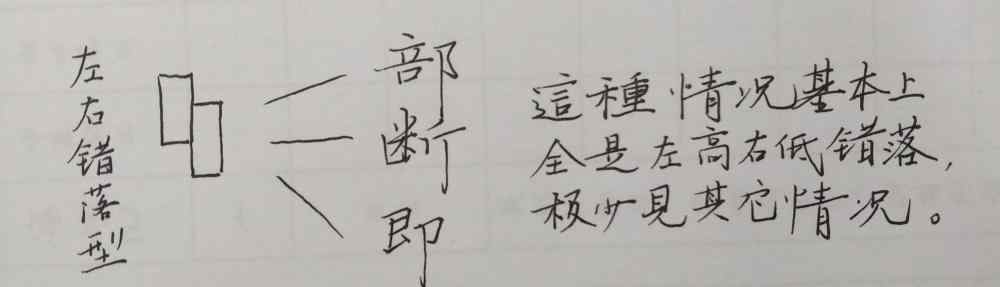 左右错落型
部
断
即
這種情况基本上
全是左高右低错落，
极少見其它情况。